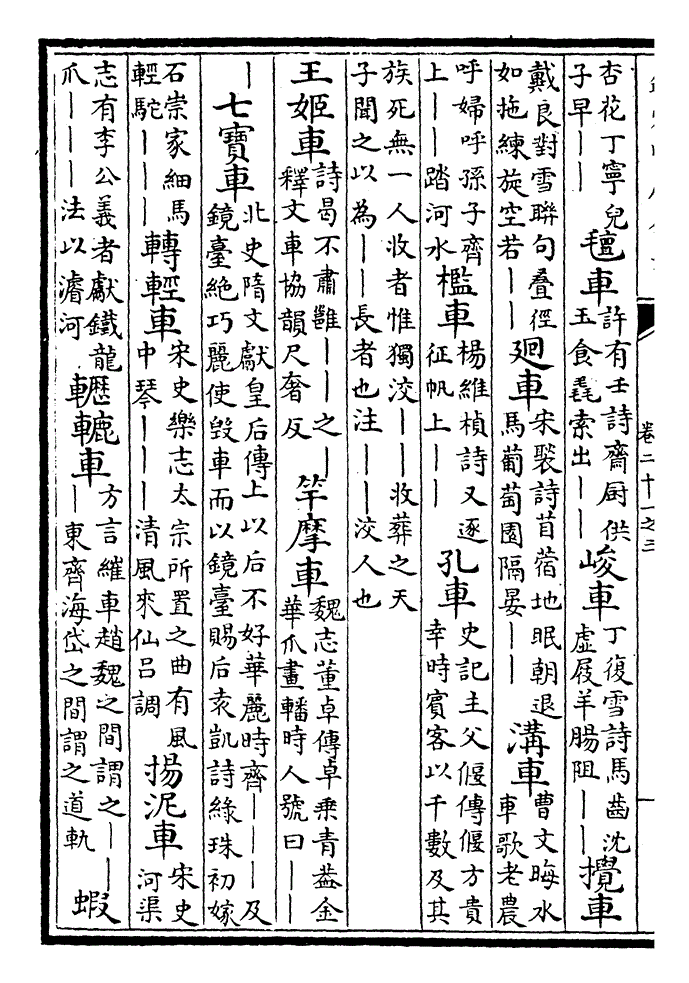 卷二十一之三
杏花丁寧兒子早——氊車許有壬詩齋厨供玉食毳索出——峻車丁復雪詩馬齒沈虚屐羊腸阻——攪車
戴良對雪聯句疊徑如拖練旋空若——廻車宋褧詩苜蓿地眠朝退馬葡萄園隔晏——溝車曹文晦水車歌老農
呼婦呼孫子齊上——踏河水檻車楊維楨詩又逐征帆上——孔車史記主父偃傳偃方貴幸時賓客以千數及其
族死無一人收者惟獨洨——收葬之天子聞之以為——長者也注——洨人也
王姬車詩曷不肅雝——之—釋文車協韻尺奢反竿摩車魏志董卓傳卓乗青葢金華爪畫轓時人號曰——
—七寶車北史隋文獻皇后傳上以后不好華麗時齊———及鏡臺絶巧麗使毁車而以鏡臺賜后袁凱詩綠珠初嫁
石崇家細馬輕駝———轉輕車宋史樂志太宗所置之曲有風中琴———清風來仙呂調揚泥車宋史河渠
志有李公義者獻鐵龍爪———法以濬河轣轆車方言維車趙魏之間謂之———東齊海岱之間謂之道軌蝦